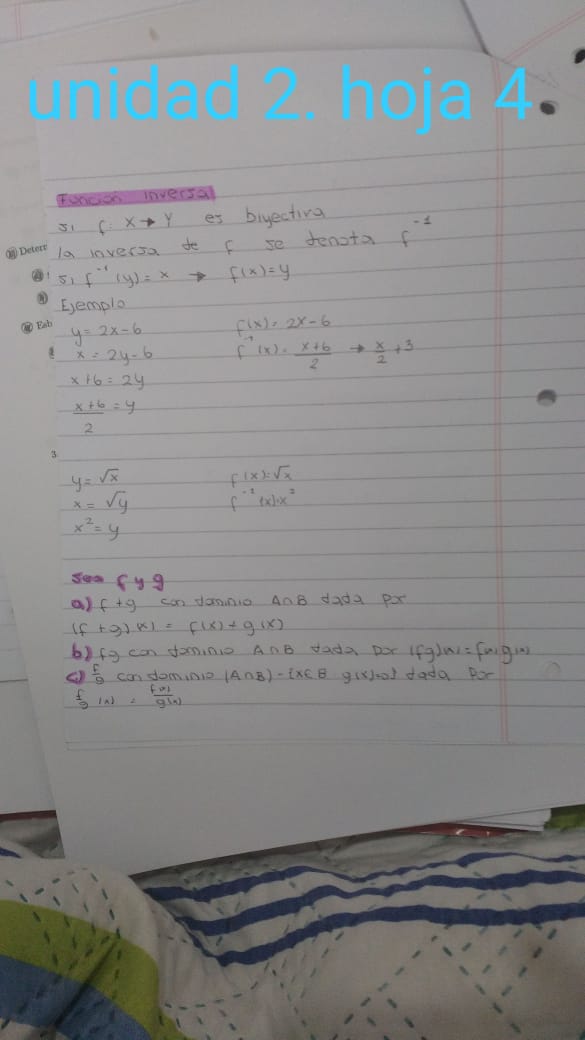 unidad 2. hoja 4.
Función inversa
Si f: X → Y es biyectiva
Deterr
la inversa de f se denota f⁻¹
Si f⁻¹(y) = x → f(x) = y
Ejemplo
Esb
y = 2x - 6 f(x) = 2x - 6
x = 2y - 6 f⁻¹(x) = x + 6 / 2 → x/2 + 3
x + 6 = 2y
x + 6 / 2 = y
3
y = √x f(x) = √x
x = √y f⁻¹(x) = x²
x² = y
Sea f y g
a) f + g con dominio A∩B dada por
(f + g)(x) = f(x) + g(x)
b) fg con dominio A∩B dada por (fg)(x) = f(x) g(x)
c) f/g con dominio (A∩B) - {x∈B g(x)=0} dada por
f/g (x) = f(x)/g(x)